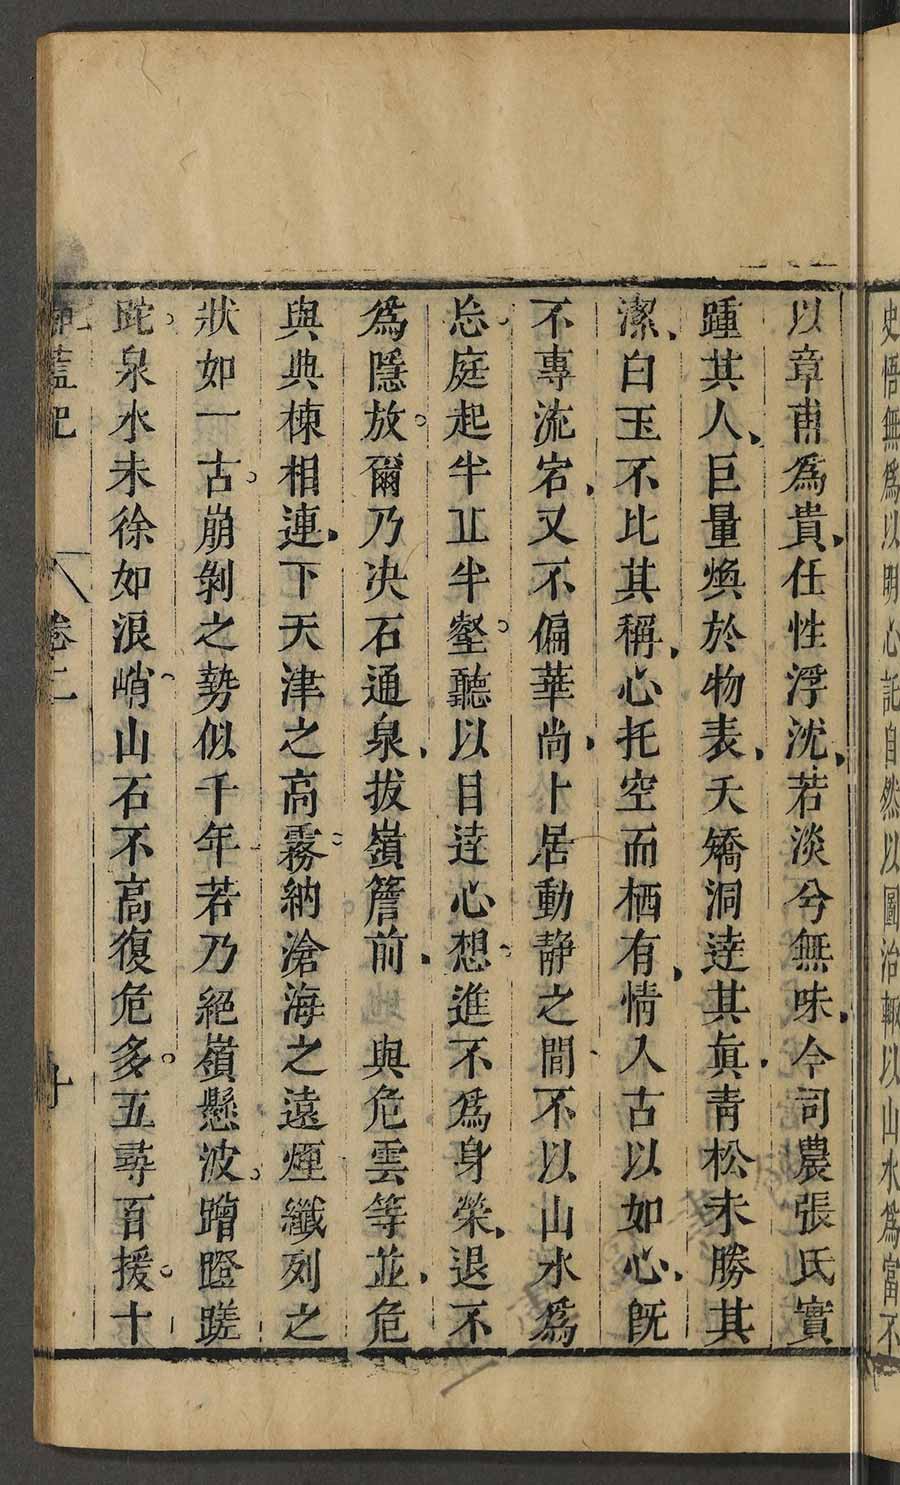 史悟無爲以明心託自然以圖治輙以山水爲富不
以章甫爲貴任性浮沈若淡兮無味今司農張氏實
踵其人巨量煥於物表夭矯洞逹其眞青松未勝其
潔白玉不比其稱心托空而栖有情入古以如心旣
不專流宕又不偏華尚卜居動靜之間不以山水爲
忘庭起半丘半壑聽以目逹心想進不爲身榮退不
爲隱放爾乃决石通泉拔嶺簷前與危雲等並危
與典棟相連下天津之高霧納滄海之遠煙纖列之
狀如一古崩剝之勢似千年若乃絕嶺懸波蹭蹬蹉
跎泉水未徐如浪峭山石不高復危多五尋百援十
伽藍記 卷二 十